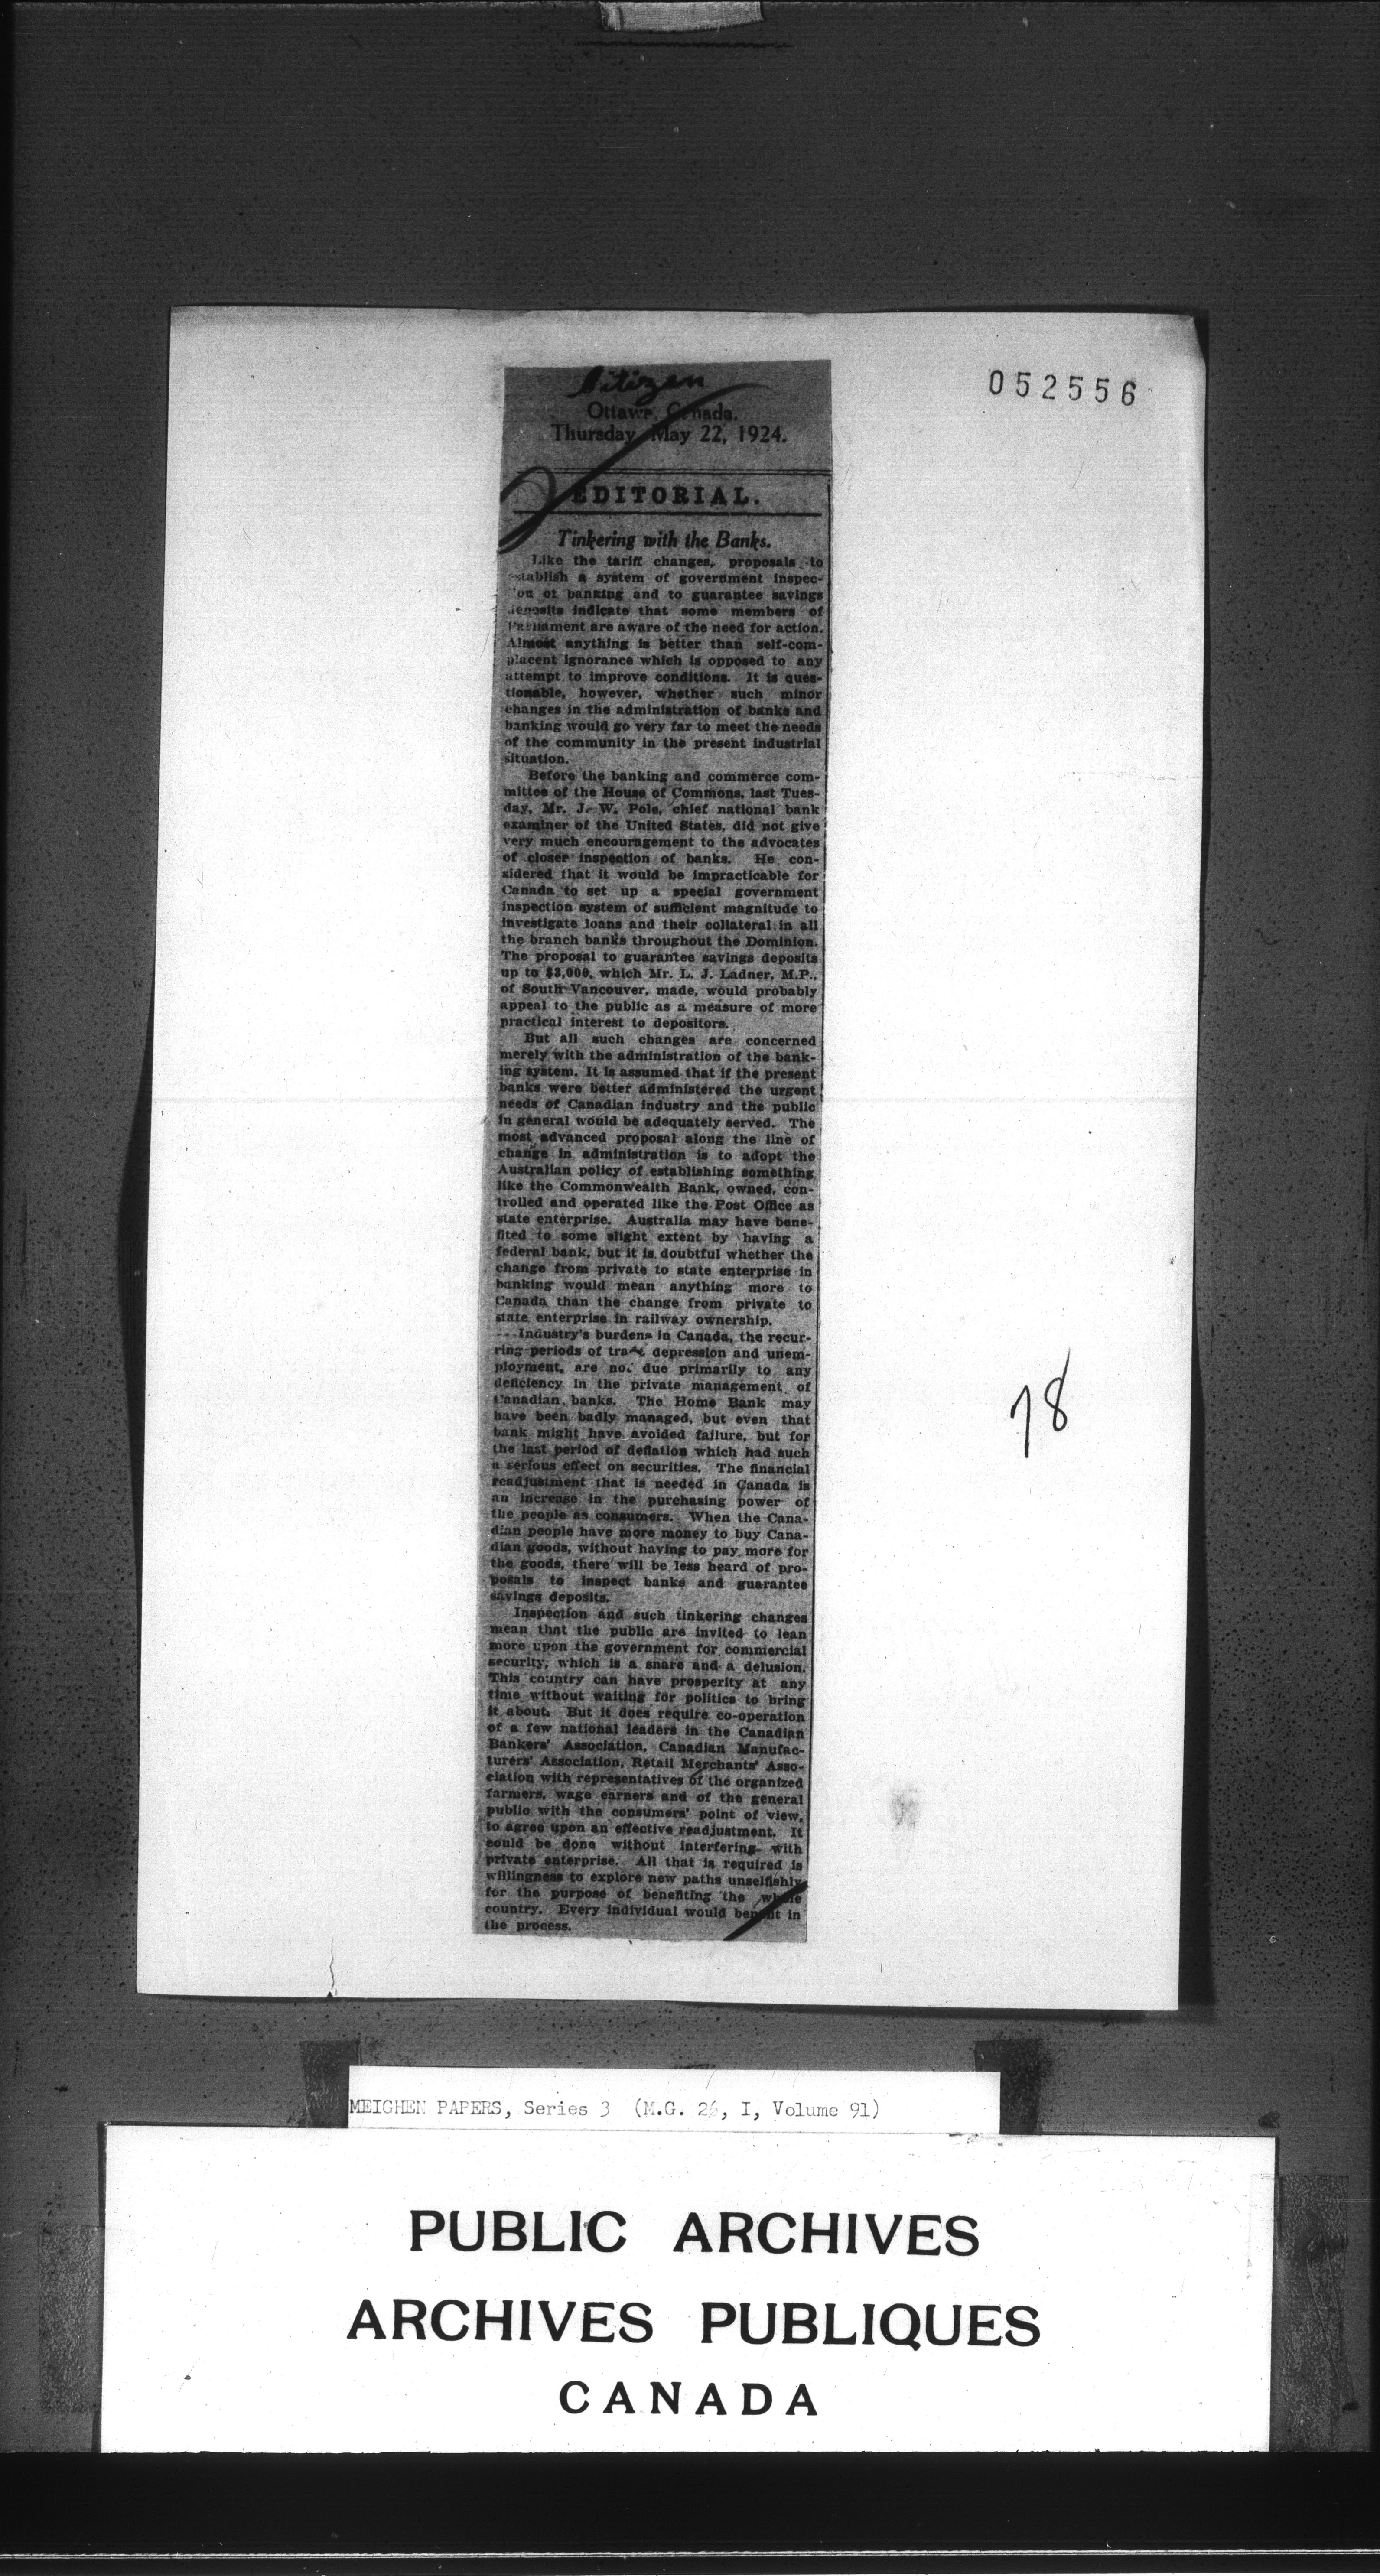 052556
Citizen
Ottawa, Canada.
Thursday, May 22, 1924.
EDITORIAL.
Tinkering with the Banks.
Like the tariff changes, proposals to
establish a system of government inspec-
ion of banking and to guarantee savings
deposits indicate that some members of
Parliament are aware of the need for action.
Almost anything is better than self-com-
placent ignorance which is opposed to any
attempt to improve conditions. It is ques-
tionable, however, whether such minor
changes in the administration of banks and
banking would go very far to meet the needs
of the community in the present industrial
situation.
Before the banking and commerce com-
mittee of the House of Commons, last Tues-
day, Mr. J. W. Pole, chief national bank
examiner of the United States, did not give
very much encouragement to the advocates
of closer inspection of banks. He con-
sidered that it would be impracticable for
Canada to set up a special government
inspection system of sufficient magnitude to
investigate loans and their collateral in all
the branch banks throughout the Dominion.
The proposal to guarantee savings deposits
up to $3,000, which Mr. L. J. Ladner, M.P.,
of South Vancouver, made, would probably
appeal to the public as a measure of more
practical interest to depositors.
But all such changes are concerned
merely with the administration of the bank-
ing system. It is assumed that if the present
banks were better administered the urgent
needs of Canadian industry and the public
in general would be adequately served. The
most advanced proposal along the line of
change in administration is to adopt the
Australian policy of establishing something
like the Commonwealth Bank, owned, con-
trolled and operated like the Post Office as
state enterprise. Australia may have bene-
fited to some slight extent by having a
federal bank, but it is doubtful whether the
change from private to state enterprise in
banking would mean anything more to
Canada than the change from private to
state enterprise in railway ownership.
Industry's burdens in Canada, the recur-
ring periods of trade depression and unem-
ployment, are not due primarily to any
deficiency in the private management of
Canadian banks. The Home Bank may
have been badly managed, but even that
bank might have avoided failure, but for
the last period of deflation which had such
a serious effect on securities. The financial
readjustment that is needed in Canada is
an increase in the purchasing power of
the people as consumers. When the Cana-
dian people have more money to buy Cana-
dian goods, without having to pay more for
the goods, there will be less heard of pro-
posals to inspect banks and guarantee
savings deposits.
Inspection and such tinkering changes
mean that the public are invited to lean
more upon the government for commercial
security, which is a snare and a delusion.
This country can have prosperity at any
time without waiting for politics to bring
it about. But it does require co-operation
of a few national leaders in the Canadian
Bankers' Association, Canadian Manufac-
turers' Association, Retail Merchants' Asso-
ciation with representatives of the organized
farmers, wage earners and of the general
public with the consumers' point of view,
to agree upon an effective readjustment. It
could be done without interfering with
private enterprise. All that is required is
willingness to explore new paths unselfishly
for the purpose of benefiting the whole
country. Every individual would benefit in
the process.
78
MEIGHEN PAPERS, Series 3 (M.G. 26, I, Volume 91)
PUBLIC ARCHIVES
ARCHIVES PUBLIQUES
CANADA